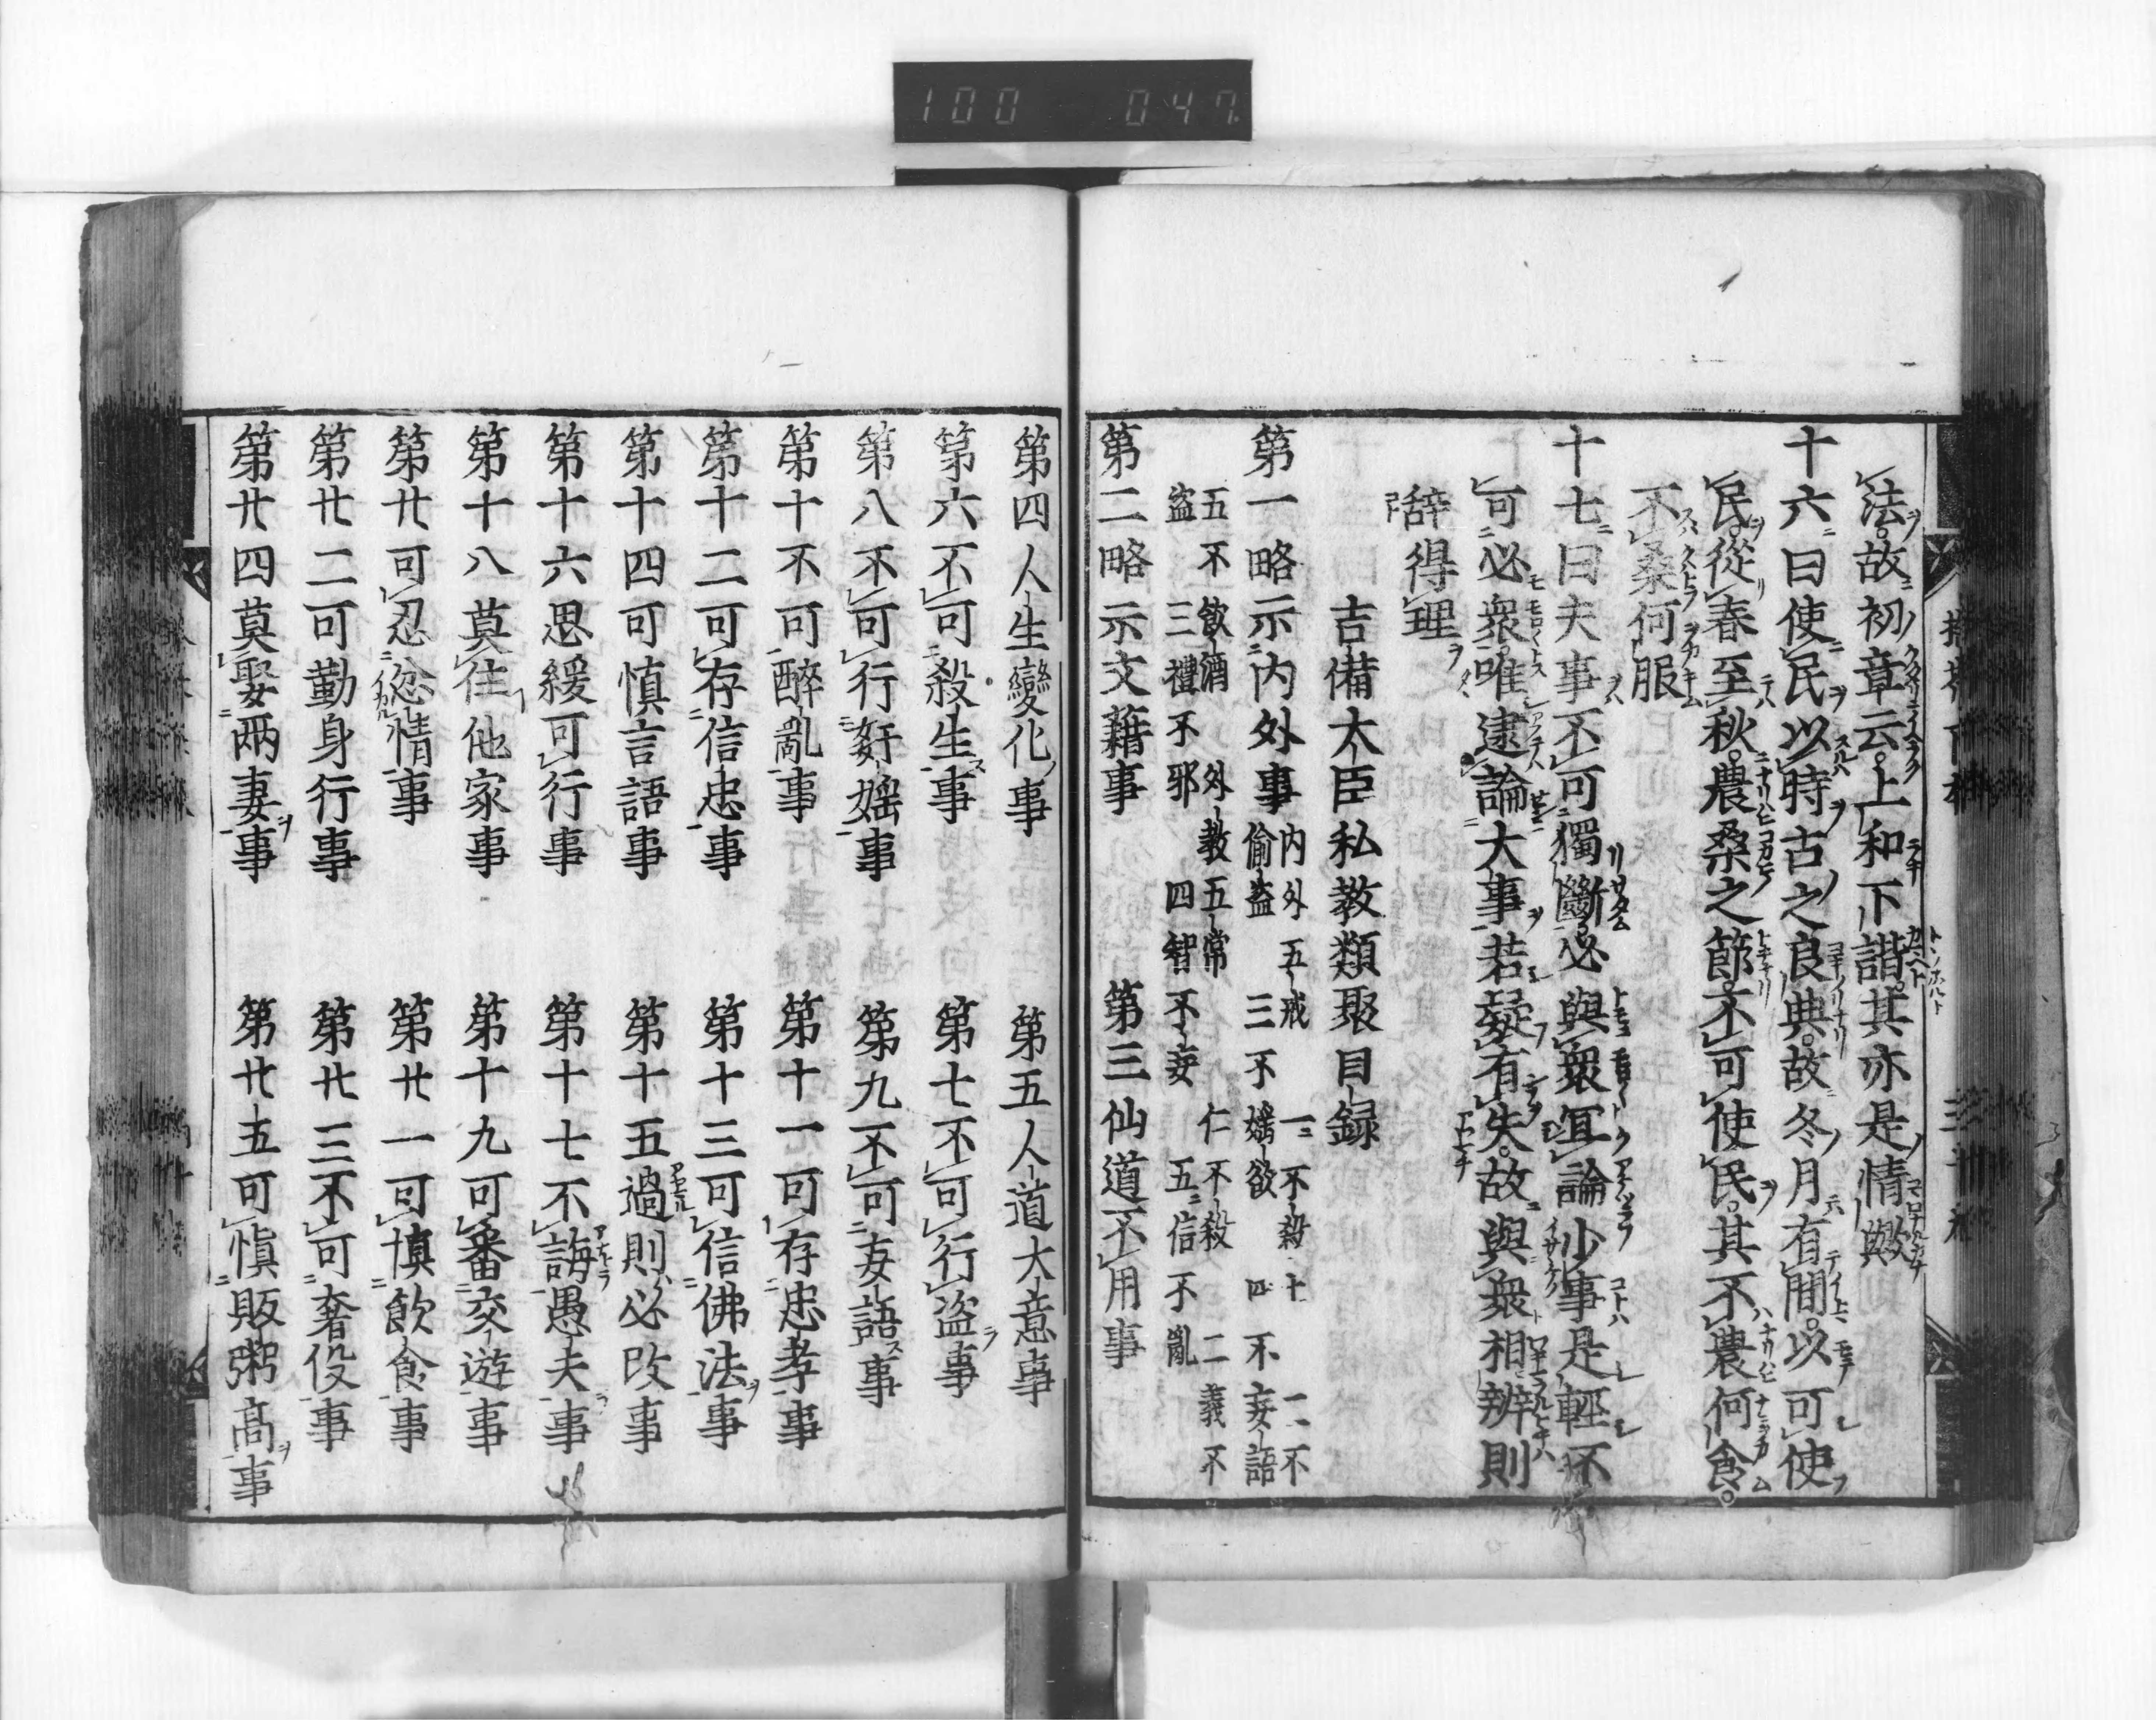 100 047
法故初章云上和下諧其亦是情歟
十六曰使民以時古之良典故冬月有間以可使
民從春至秋農桑之節不可使民其不農何食
不桑何服
十七曰夫事不可獨斷必與衆冝論少事是輕不
可必衆唯逮論大事若疑有失故與衆相辨則
辭得理
吉備大臣私教類聚目録
第一略示内外事
内外五戒 一不殺生 二不
偸盗 三不婬欲 四不妄語
五不飲酒 外教五常 仁不殺 二義不
盗 三禮不邪 四智不妄 五信不亂
第二略示文藉事 第三仙道不用事
第四人生變化事 第五人道大意事
第六不可殺生事 第七不可行盗事
第八不可行姧婬事 第九不可妄語事
第十不可醉亂事 第十一可存忠孝事
第十二可存信忠事 第十三可信佛法事
第十四可慎言語事 第十五過則必改事
第十六思緩可行事 第十七不誨愚夫事
第十八莫住他家事 第十九可審交遊事
第廿可忍忿情事 第廿一可慎飲食事
第廿二可勤身行事 第廿三不可奢侈事
第廿四莫娶兩妻事 第廿五可慎販粥髙事